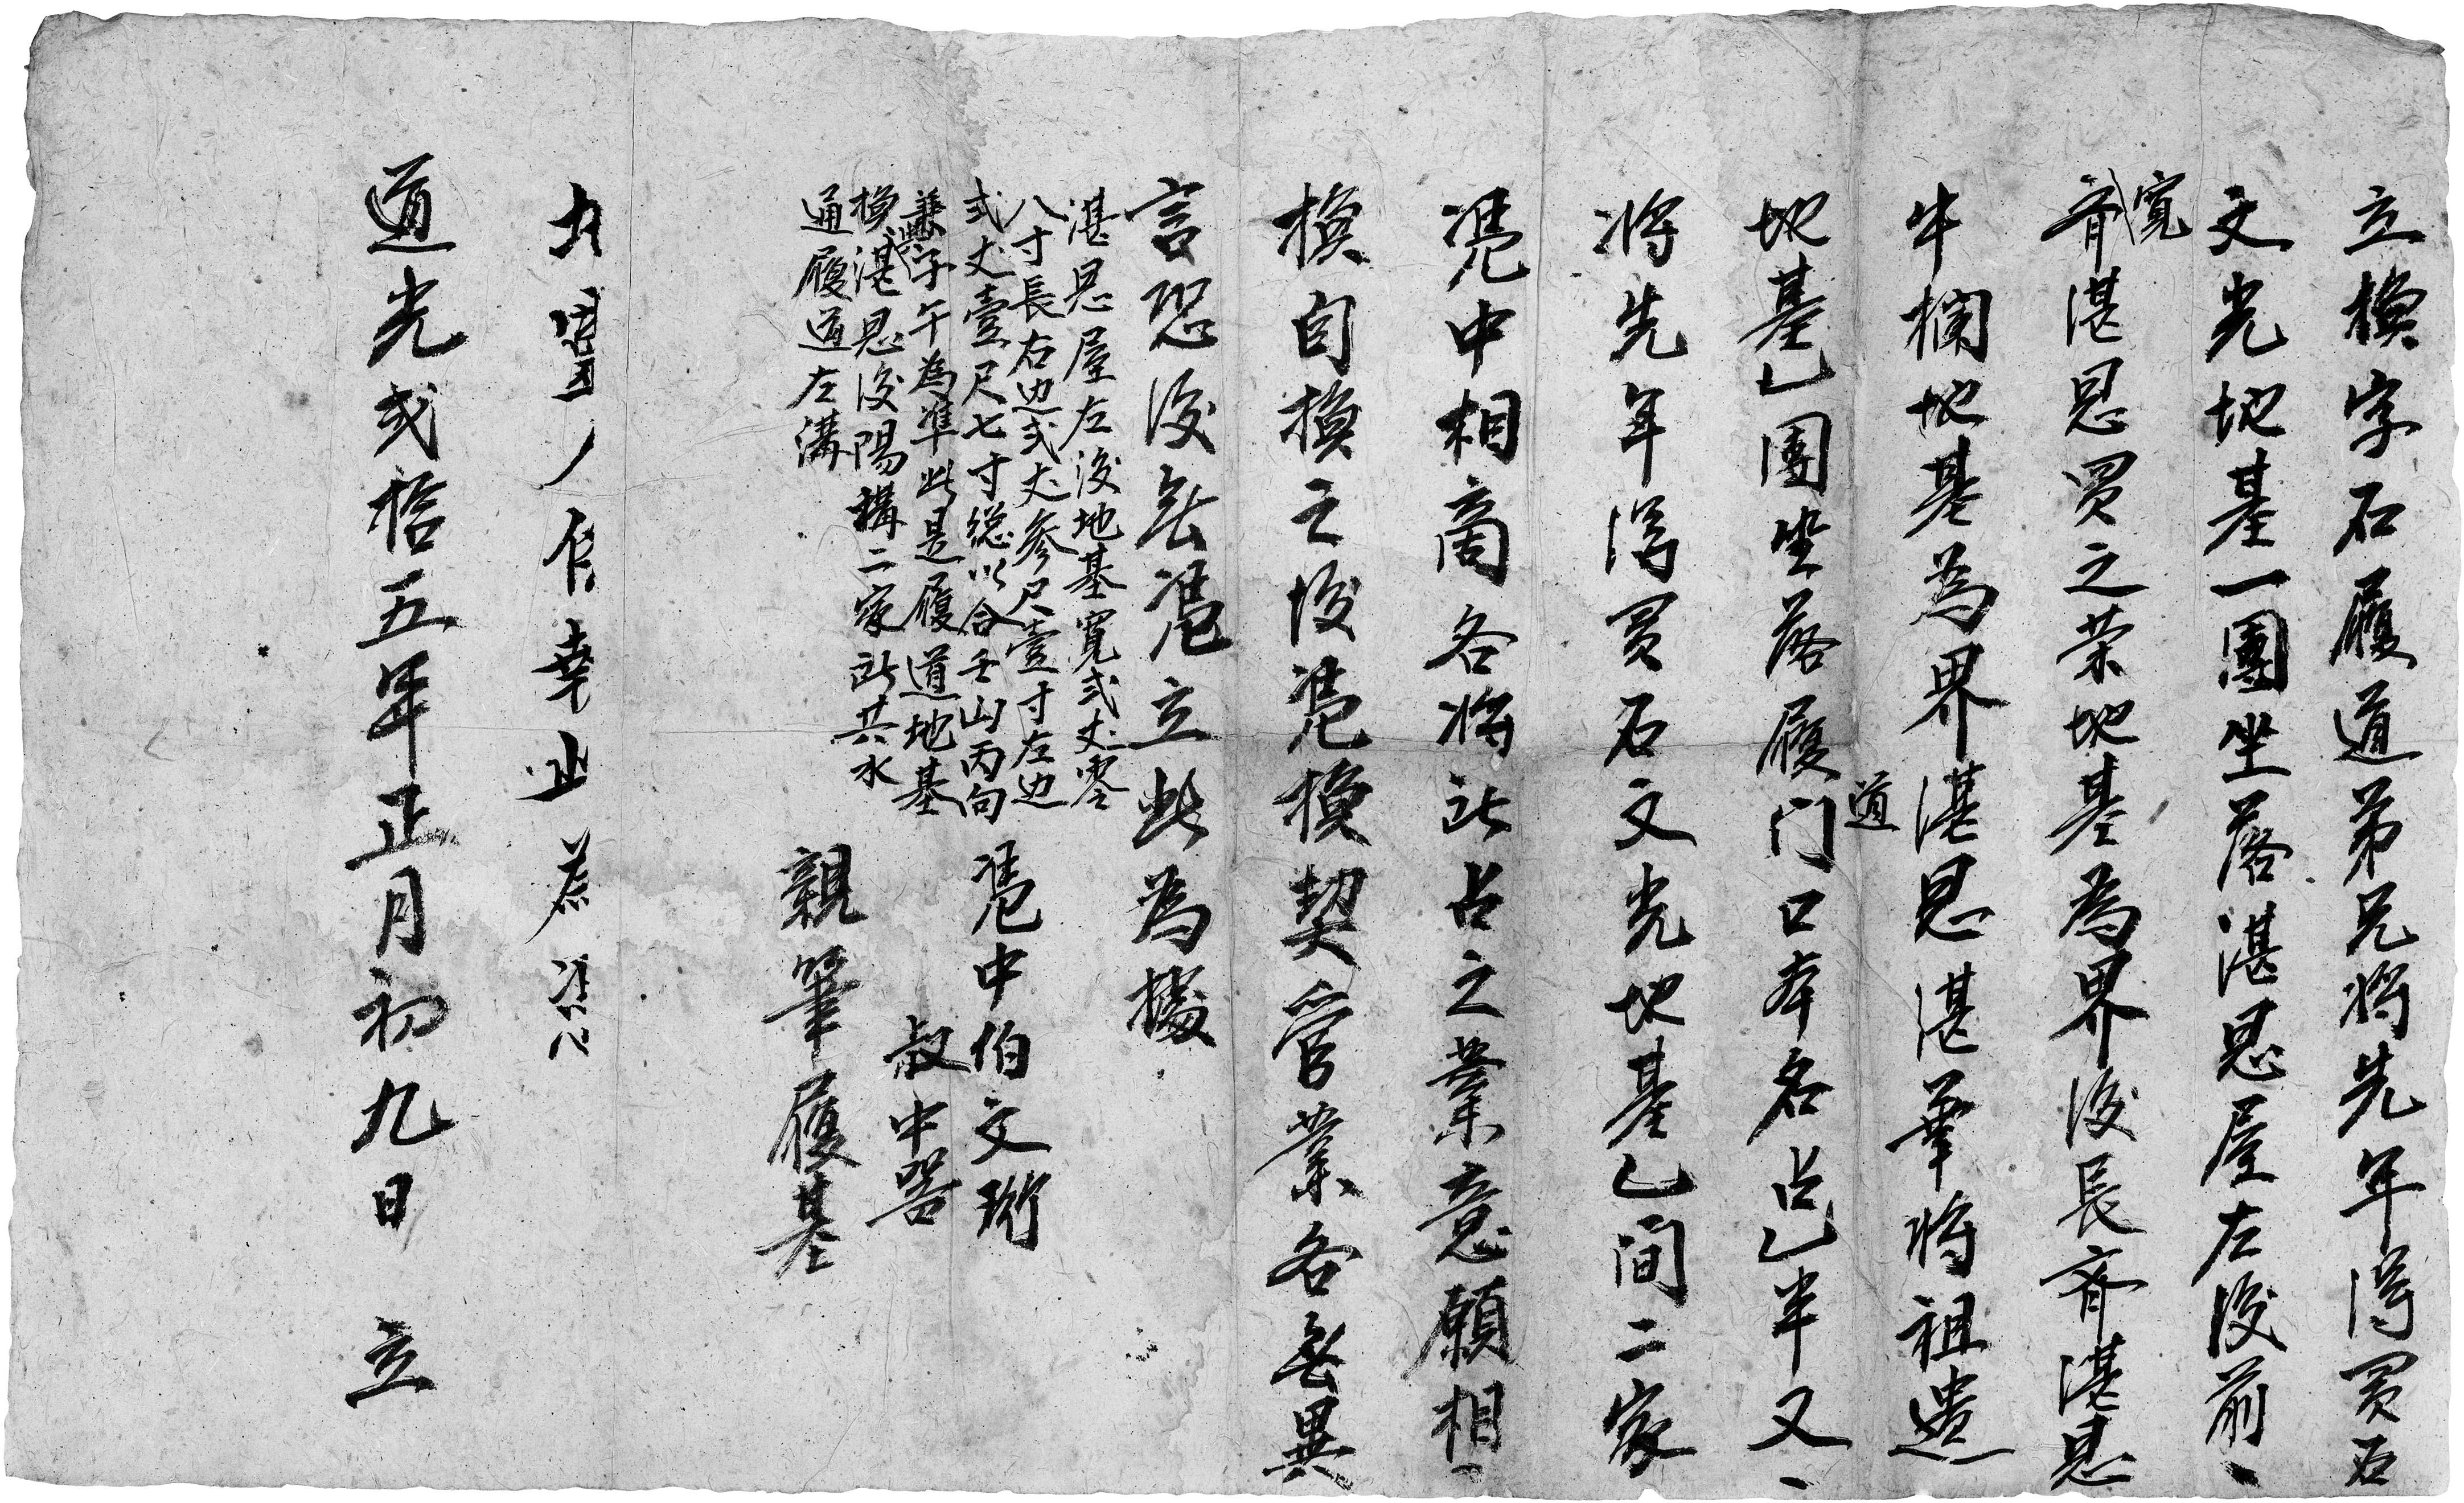 立換字石履道弟兄將先年得買石
文光地基一團坐落湛恩屋左後前
寬齊湛恩買之荣地基為界後長齊湛恩
牛欄地基為界湛恩湛華將祖遗
地基乙團坐落履道门口本名占乙半又
將先年得買石文光地基乙间二家
凴中相商各將所占之業意願相
換自換之後凴換契管業各無異
言恐後無凴立此為據
湛恩屋左後地基寬弍丈零
八寸長右边弍丈参尺壹寸左边
弍丈壹尺七寸総以合壬山丙向
兼子午為準此是履道地基
換與湛恩後陽構二家所共水
通履道左溝
凴中伯文珩
叔中器
親筆履基
道光弍拾五年正月初九日 立